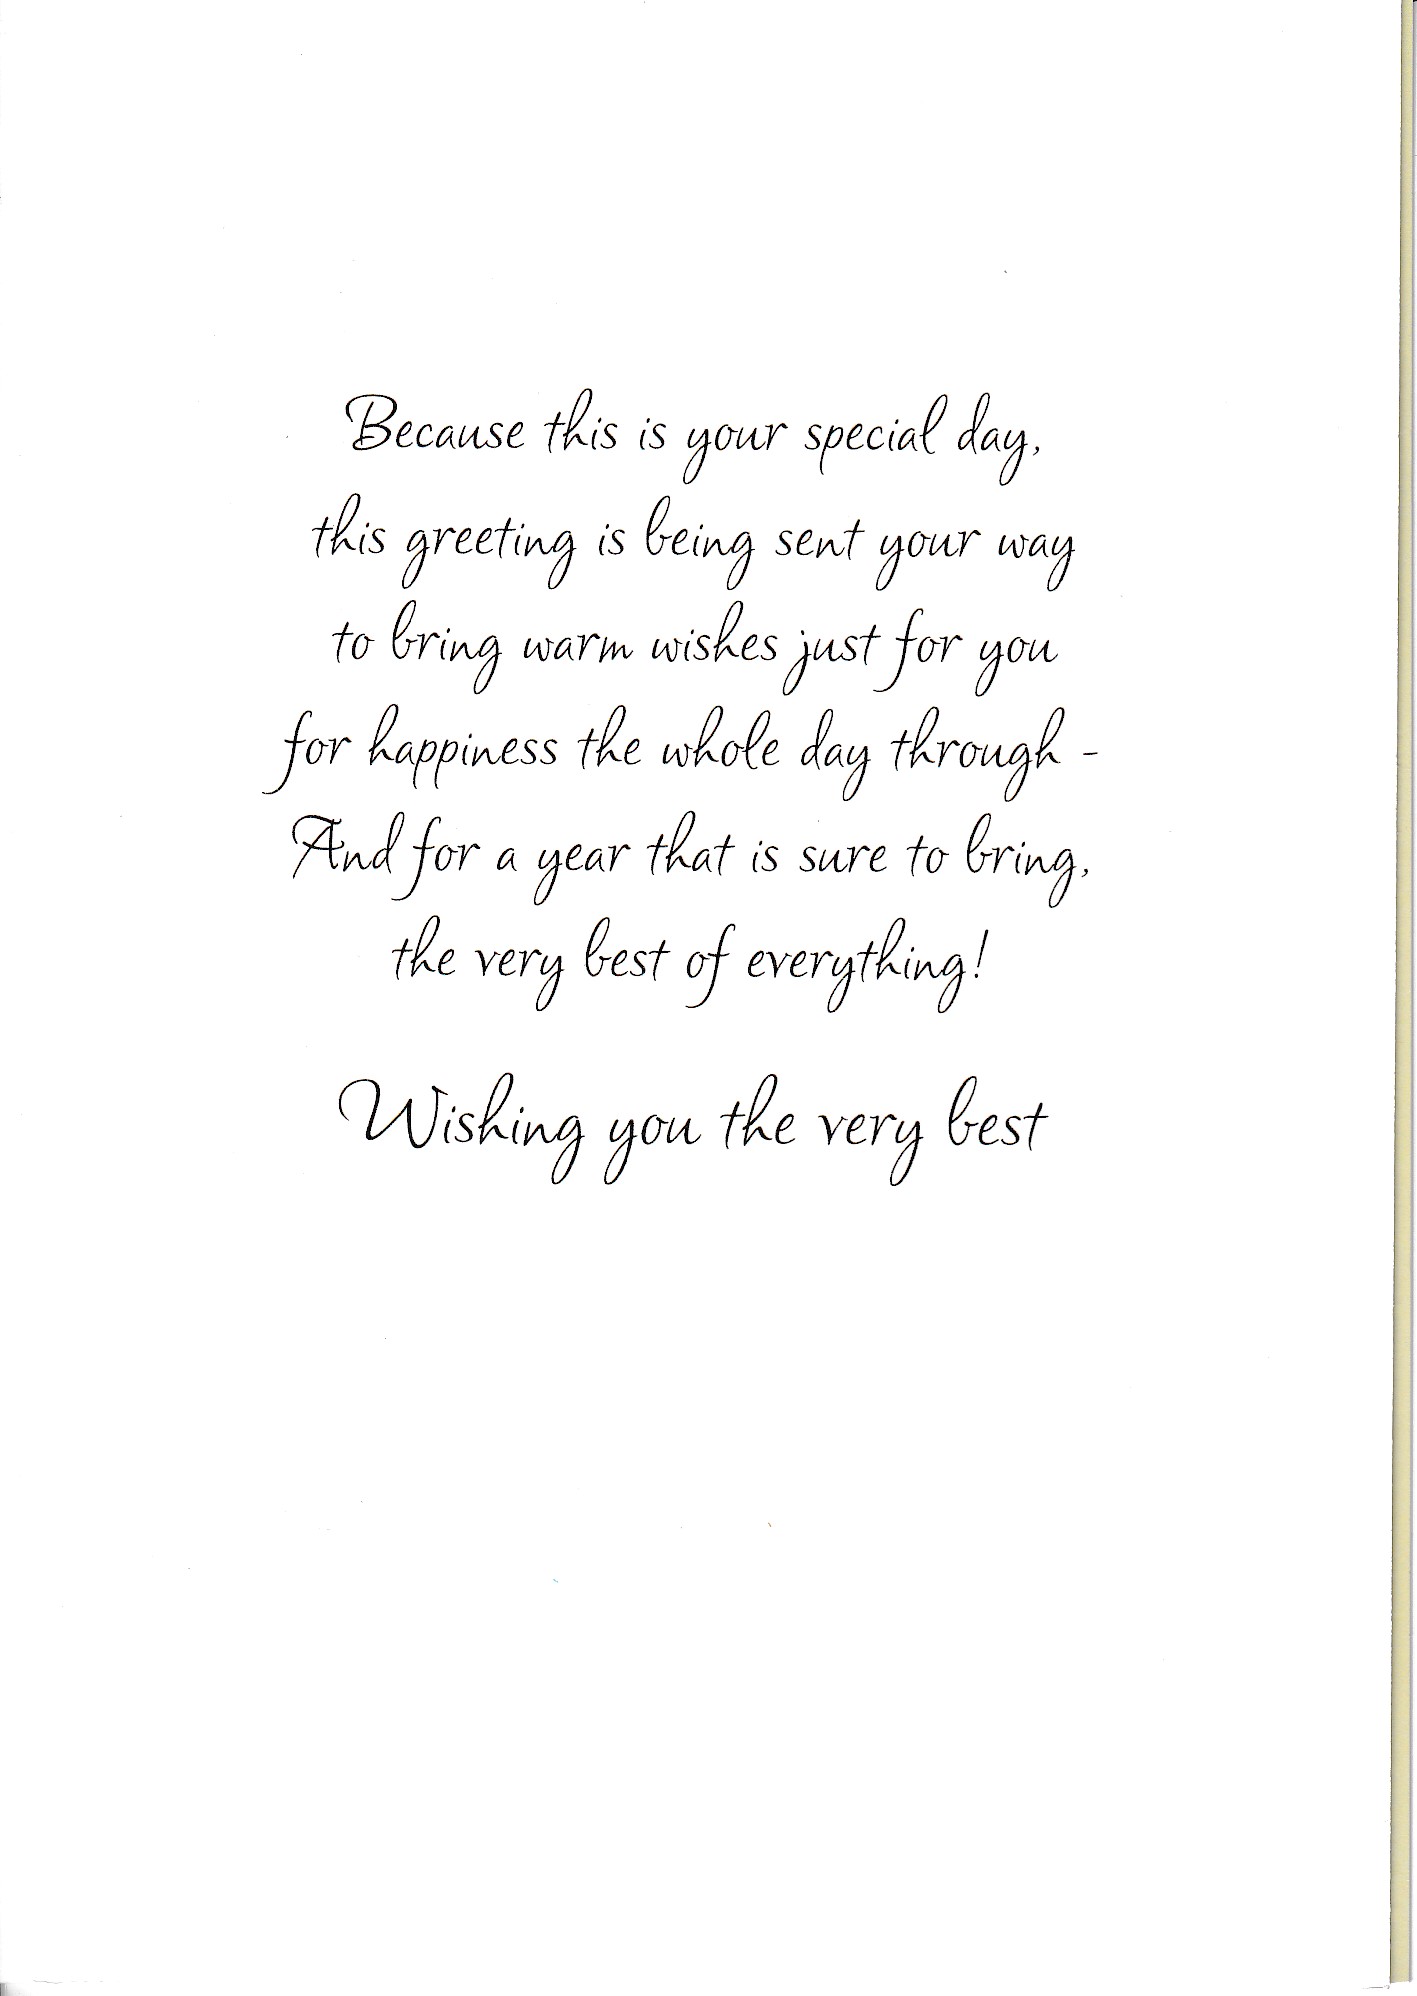 Because this is your special day,
this greeting is being sent your way
to bring warm wishes just for you
for happiness the whole day through -
And for a year that is sure to bring,
the very best of everything!
Wishing you the very best